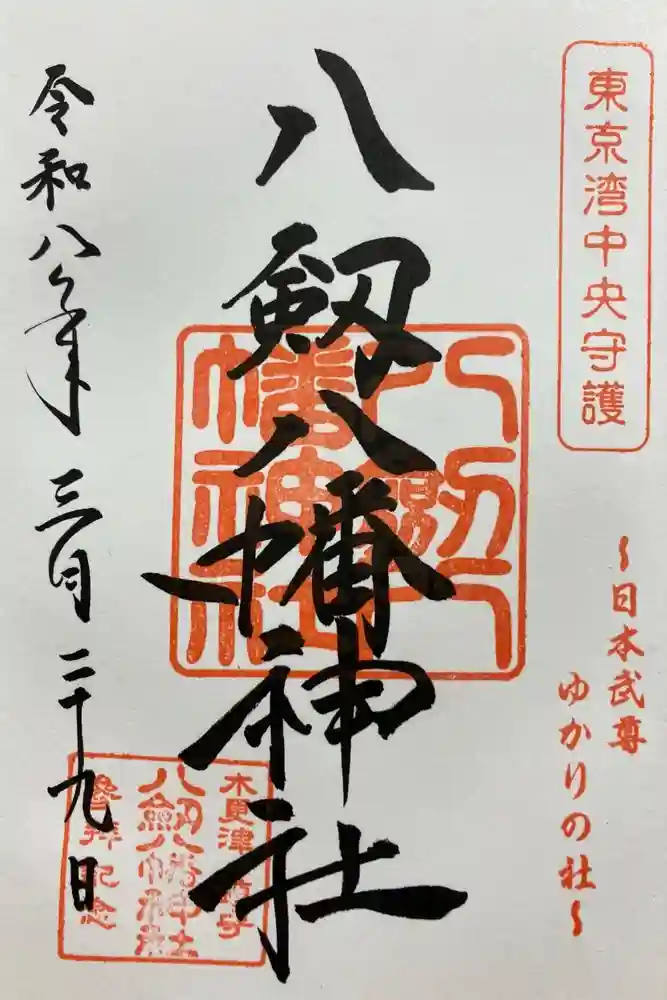 東京湾中央守護
〜日本武尊
ゆかりの社〜
八劔八幡神社
八劔八幡神社
木更津總鎮守
八劔八幡神社
參拝記念
令和八年
三月二十九日